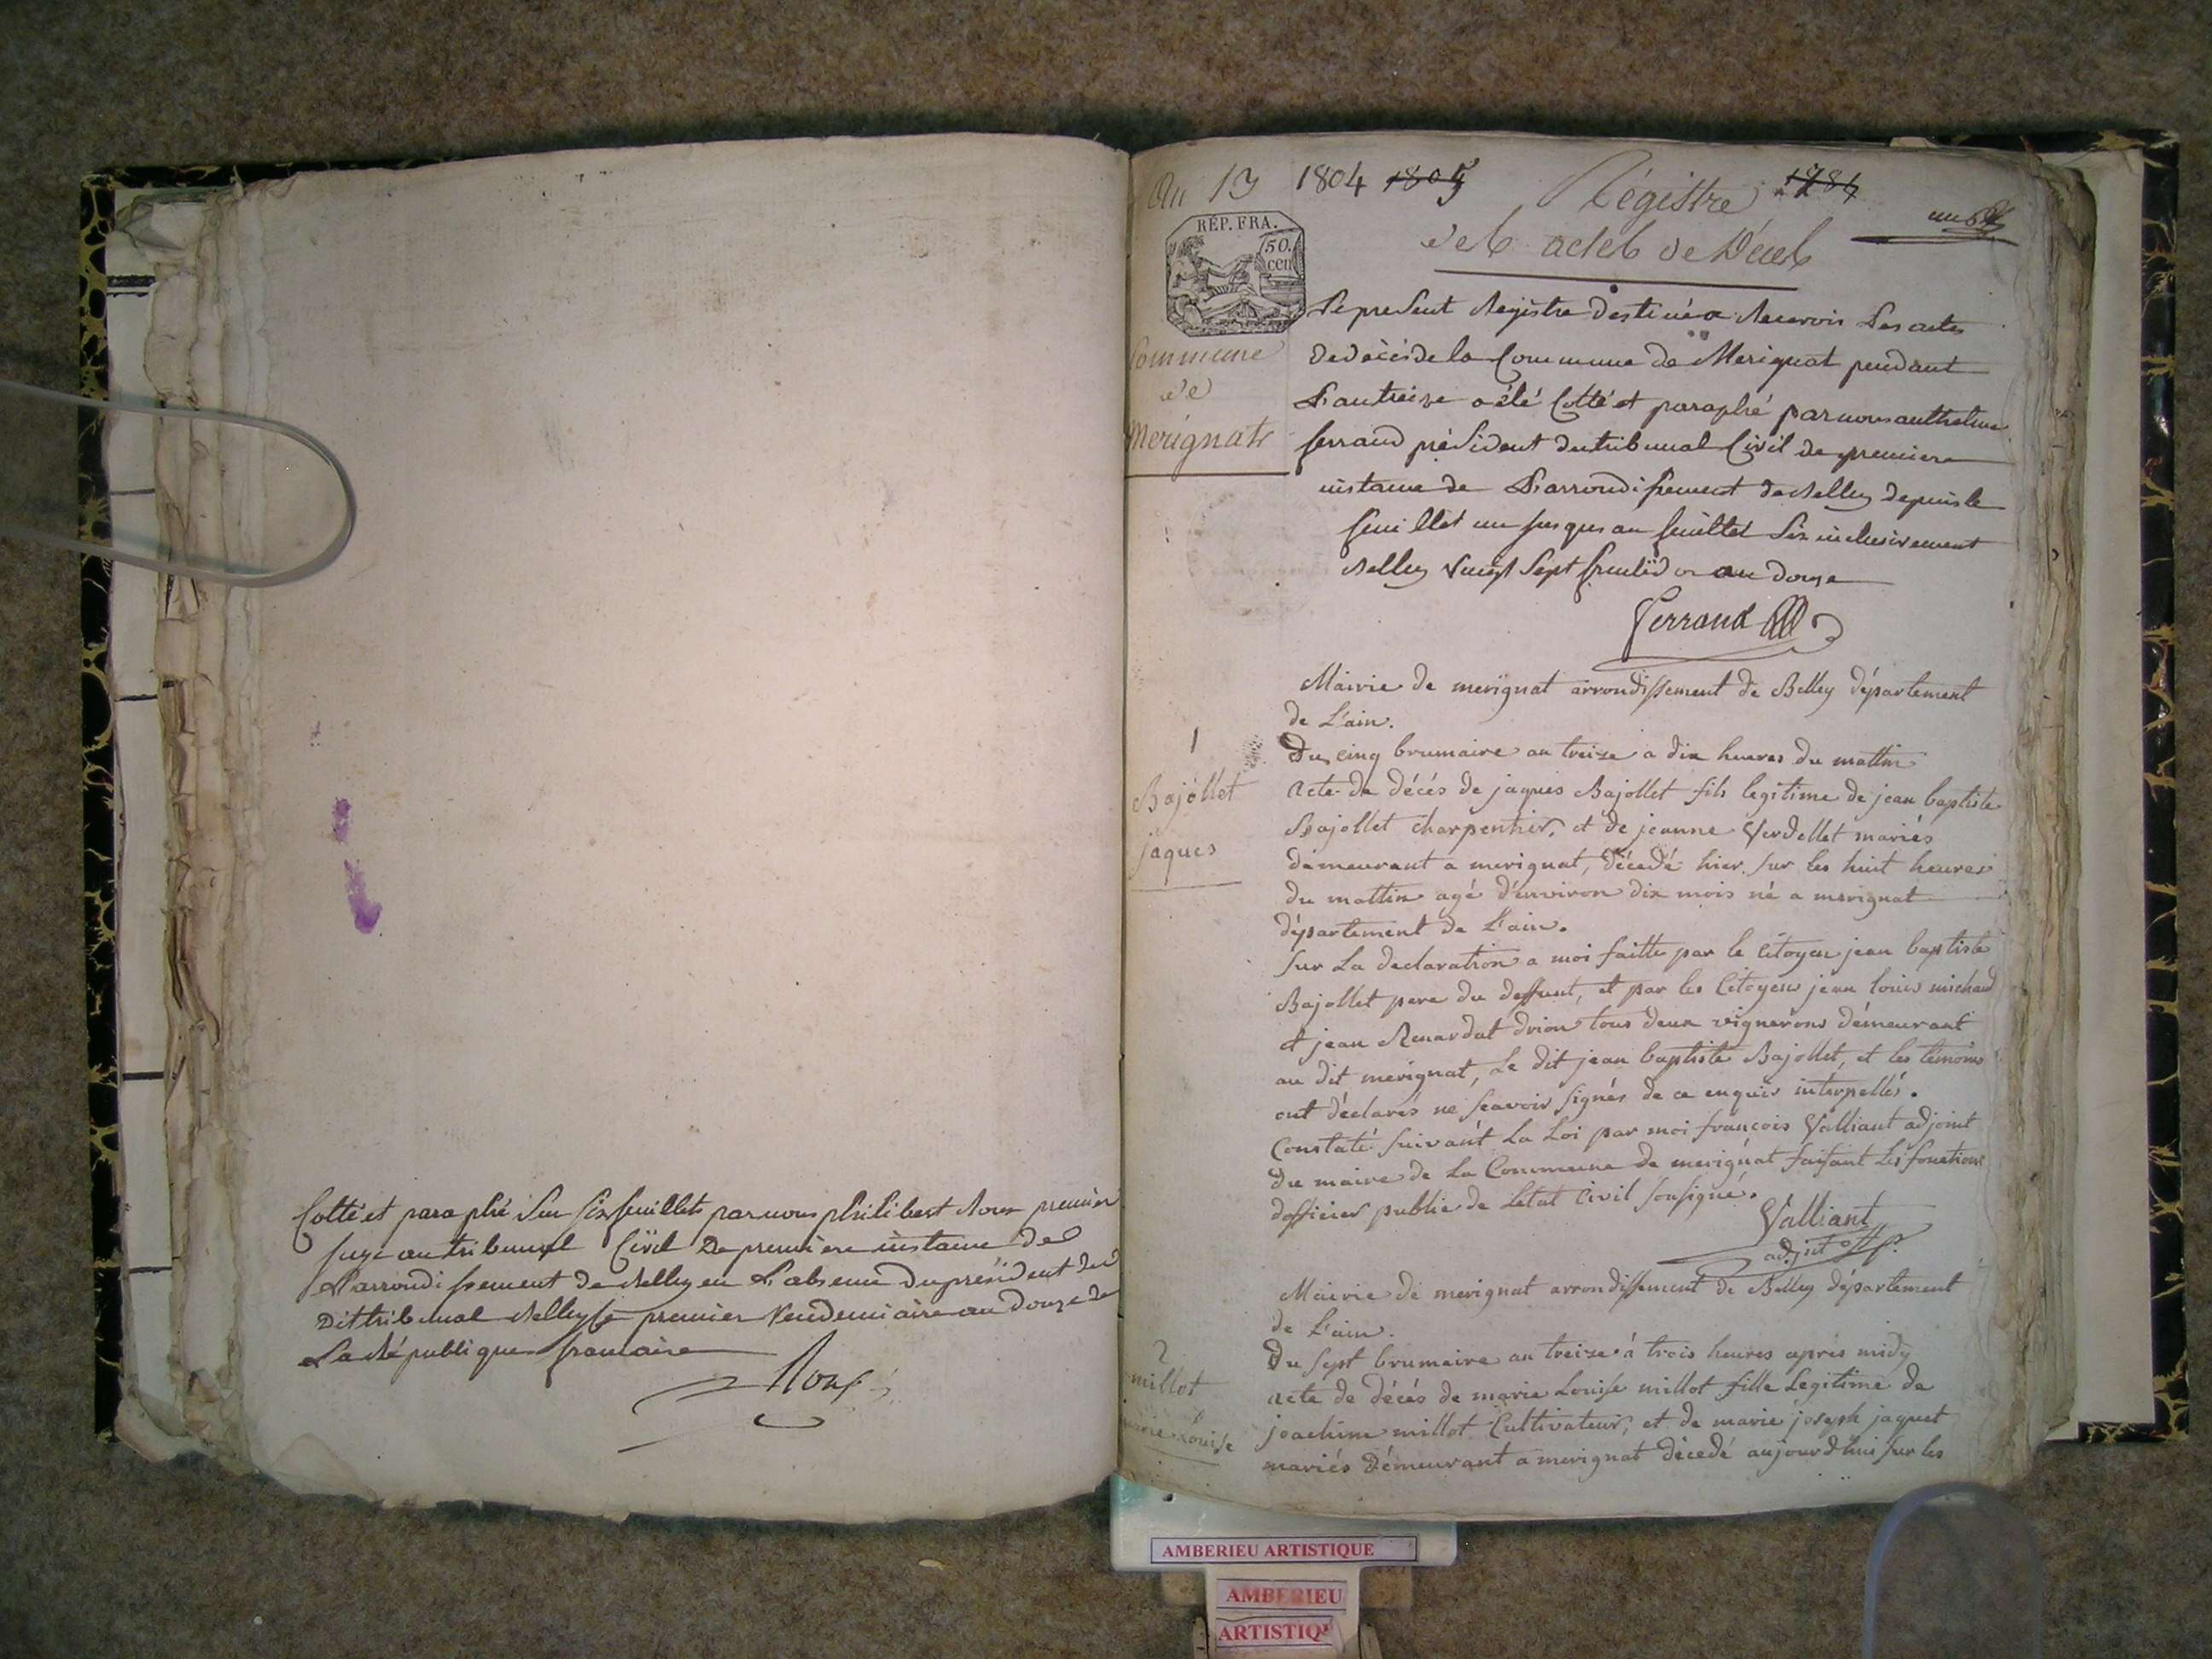 Cotté et paraphé Sur six feuillets par nous philibert Roux premier
juge au tribunal Civil De premiere instance de
L'arrondissement de Belley en L'absence du président du
Dit tribunal Belley le premier Vendemiaire an douze de
La République francaise
Roux
An 13 1804 1805 Régistre 1784
des actes de Décés
RÉP. FRA.
50.
cen
Commune
de
Mérignat
Le present Registre destiné a Recevoir Les actes
de décés de la Commune de Merignat pendant
L'an treize a été Cotté et paraphé par nous anthelme
ferrand président du tribunal Civil de premiere
instance de L'arrondissement de Belley depuis le
feuillet un jusques au feuillet Six inclusivement
Belley Vingt Sept fructidor an douze
Ferrand
Mairie de merignat arrondissement de Belley département
de L'ain.
1
Bajollet
jaques
Du cinq brumaire an treize a dix heures du mattin
Acte de décés de jaques Bajollet fils legitime de jean baptiste
Bajollet charpentier, et de jeanne Verdellet mariés
démeurant a merignat, décedé hier sur les huit heures
du mattin agé d'environ dix mois né a merignat
département de L'ain.
Sur La declaration a moi faitte par le Citoyen jean baptiste
Bajollet pere du deffunt, et par les Citoyens jean louis michaud
et jean Renardat drion tous deux vignerons démeurant
au dit merignat, Le dit jean baptiste Bajollet, et les témoins
ont déclarés ne scavoir signés de ce enquis interpellés.
Constaté suivant La Loi par moi francois Valliant adjoint
du maire de La Commune de merignat faisant les fonctions
dofficier public de Letat Civil sousigné.
Valliant
adjt
Mairie de merignat arrondissement de Belley département
de L'ain.
2
millot
marie Louise
Du Sept brumaire an treize á trois heures aprés midy
Acte de décés de marie Louise millot fille Legitime de
joachim millot Cultivateur, et de marie joseph jaquet
mariés Démeurant a merignat décedé aujourd'hui sur les
AMBERIEU ARTISTIQUE
AMBERIEU
ARTISTIQU